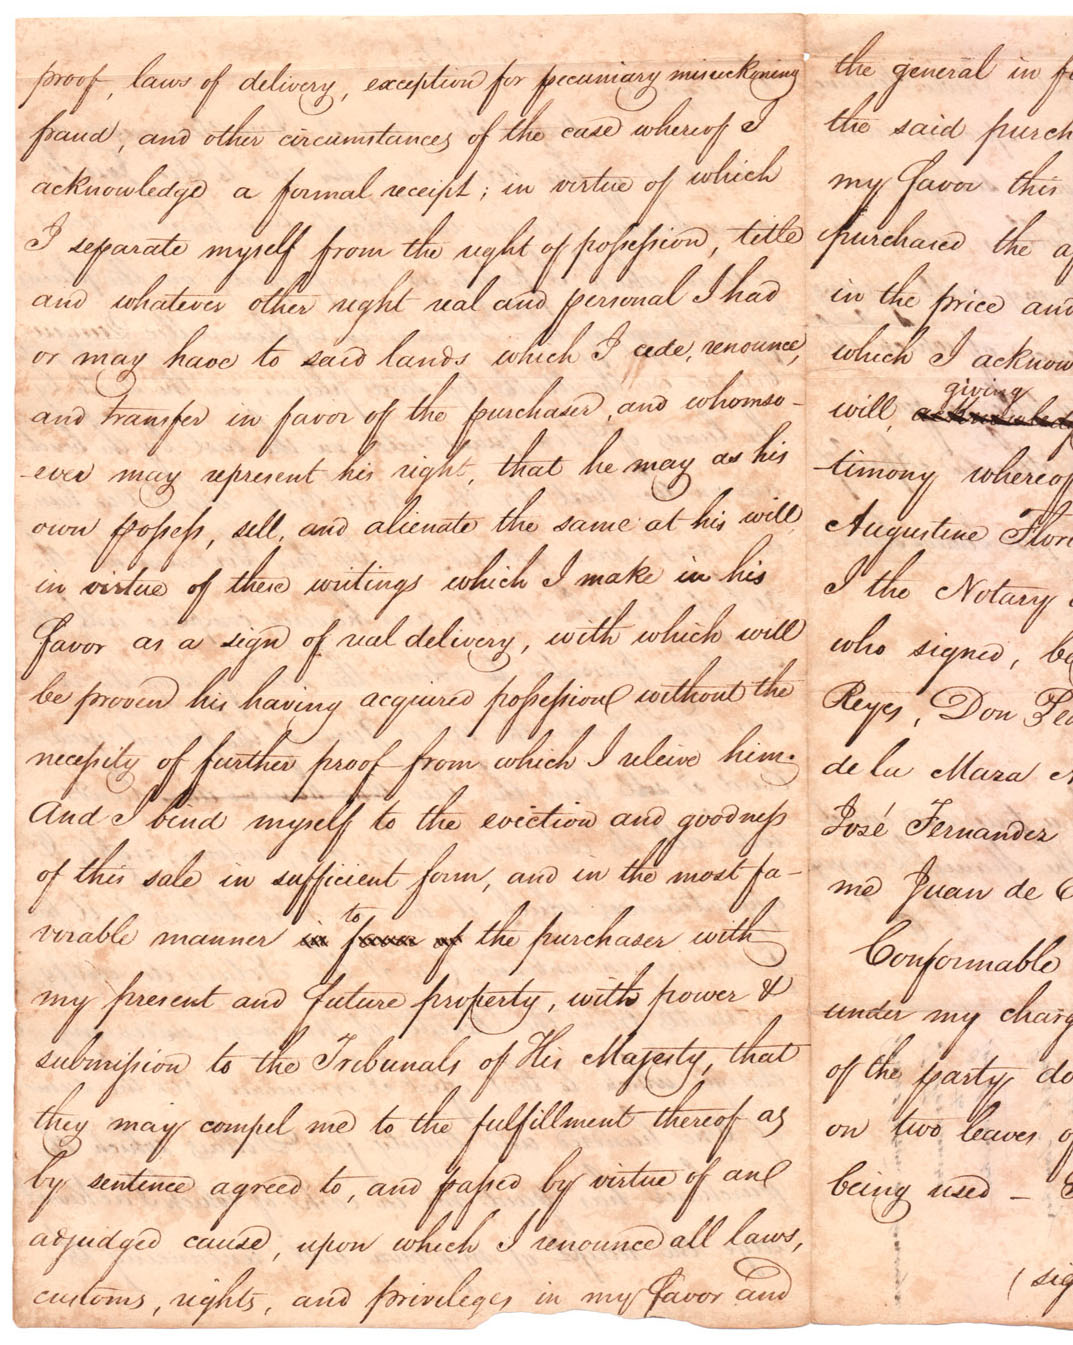 proof, laws of delivery, exception for pecuniary misreckoning
fraud, and other circumstances of the case whereof I
acknowledge a formal receipt; in virtue of which
I separate myself from the right of possession, title
and whatever other right real and personal I had
or may have to said lands which I cede, renounce,
and transfer in favor of the purchaser, and whomso-
-ever may represent his right, that he may as his
own possess, sell, and alienate the same at his will
in virtue of these writings which I make in his
favor as a sign of real delivery, with which will
be proven his having acquired possession without the
necessity of further proof from which I releive him.
And I bind myself to the eviction and goodness
of this sale in sufficient form, and in the most fa-
vorable manner in favor of to the purchaser with
my present and future property, with power &
submission to the Tribunals of His Majesty, that
they may compel me to the fulfillment thereof as
by sentence agreed to, and passed by virtue of an
adjudged cause, upon which I renounce all laws,
customs, rights, and privileges in my favor and
the general in fo
the said purch
my favor this
purchased the af
in the price and
which I acknow
will, giving
timony whereof
Augustine Flori
I the Notary
who signed, be
Reyes, Don
de la Maza
José Fernandez
me Juan de
Conformable
under my charg
of the party do
on two leaves of
being used –
(sig